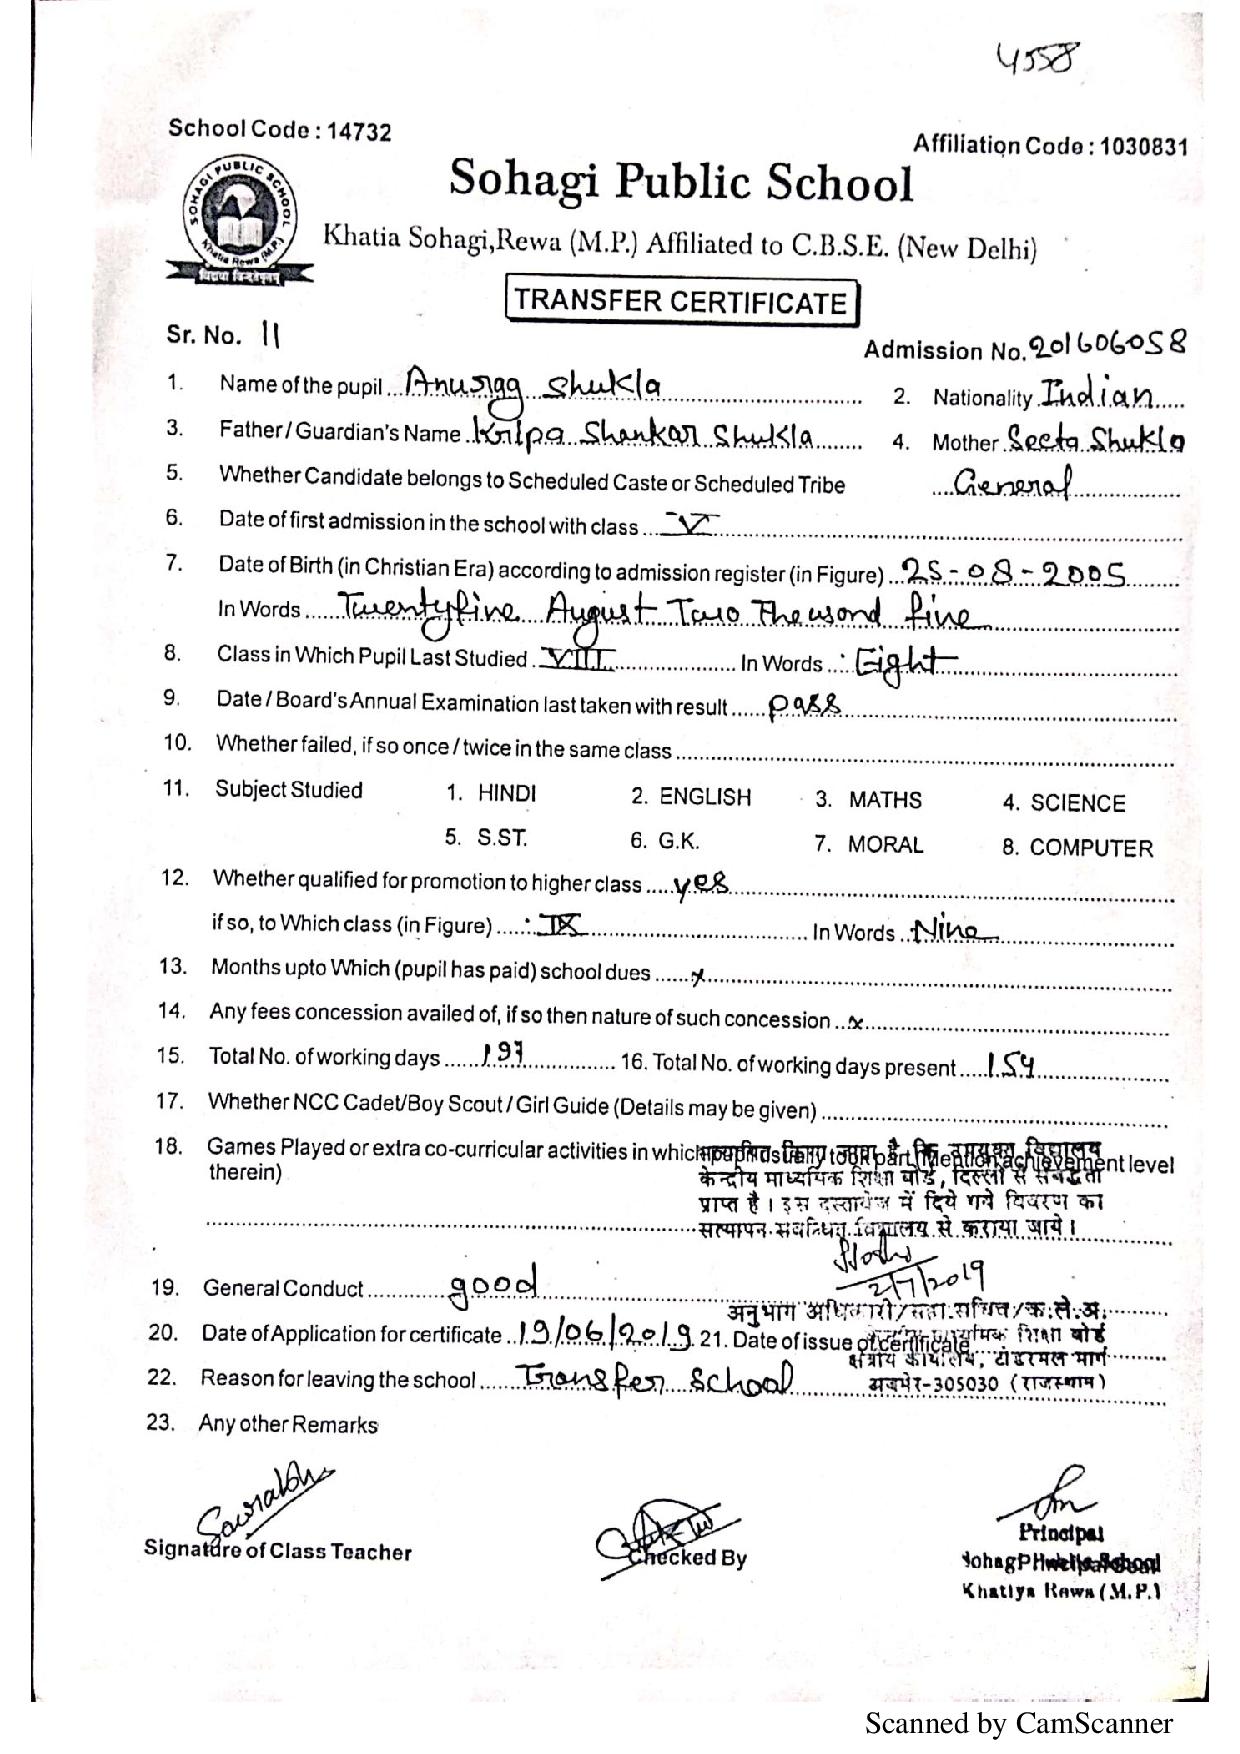 4558
School Code : 14732
Affiliation Code : 1030831
SOHAGI PUBLIC SCHOOL
Khatia Rewa (M.P.)
Sohagi Public School
Khatia Sohagi,Rewa (M.P.) Affiliated to C.B.S.E. (New Delhi)
TRANSFER CERTIFICATE
Sr. No. 11
Admission No. 201606058
1. Name of the pupil Anurag Shukla 2. Nationality Indian
3. Father/Guardian's Name Kripa Shankar Shukla 4. Mother Seeta Shukla
5. Whether Candidate belongs to Scheduled Caste or Scheduled Tribe General
6. Date of first admission in the school with class V
7. Date of Birth (in Christian Era) according to admission register (in Figure) 25-08-2005
In Words Twentyfive August Two Thousand five
8. Class in Which Pupil Last Studied VIII In Words : Eight
9. Date / Board's Annual Examination last taken with result pass
10. Whether failed, if so once / twice in the same class
11. Subject Studied 1. HINDI 2. ENGLISH 3. MATHS 4. SCIENCE
5. S.ST. 6. G.K. 7. MORAL 8. COMPUTER
12. Whether qualified for promotion to higher class yes
if so, to Which class (in Figure) : IX In Words Nine
13. Months upto Which (pupil has paid) school dues x
14. Any fees concession availed of, if so then nature of such concession x
15. Total No. of working days 197 16. Total No. of working days present 154
17. Whether NCC Cadet/Boy Scout / Girl Guide (Details may be given)
18. Games Played or extra co-curricular activities in which pupil usually took part (Mention achievement level
therein)
है कि विद्यालय
केन्द्रीय माध्यमिक शिक्षा बोर्ड, दिल्ली से संबद्धता
प्राप्त है । इस दस्तावेज में दिये गये विवरण का
सत्यापन संबन्धित विद्यालय से कराया जाये ।
2/7/2019
19. General Conduct good
अनुभाग अधिकारी/सहा.सचिव/क.ले.अ.
20. Date of Application for certificate 19/06/2019 21. Date of issue of certificate
माध्यमिक शिक्षा बोर्ड
क्षेत्रीय कार्यालय, टोडरमल मार्ग
22. Reason for leaving the school Transfer School
अजमेर-305030 (राजस्थान)
23. Any other Remarks
Saurabh
Signature of Class Teacher
Checked By
Principal
Sohagi Public School
Khatiya Rewa (M.P.)
Scanned by CamScanner